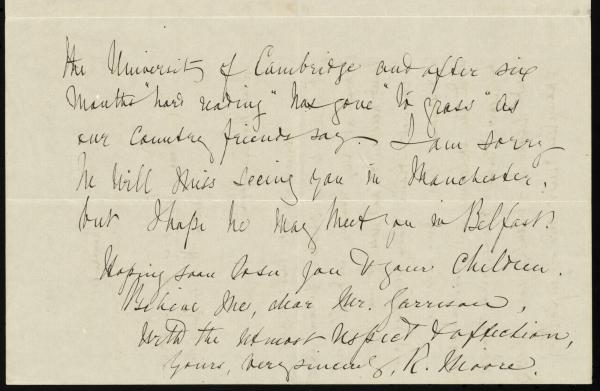 the University of Cambridge and after six
months "hard reading" has gone "to grass" as
our country friends say. I am sorry
he will miss seeing you in Manchester,
but I hope he may meet you in Belfast.
Hoping soon to see you & your children.
Believe me, dear Mr. Garrison,
With the utmost respect & affection,
Yours, very sincerely, R. Moore.